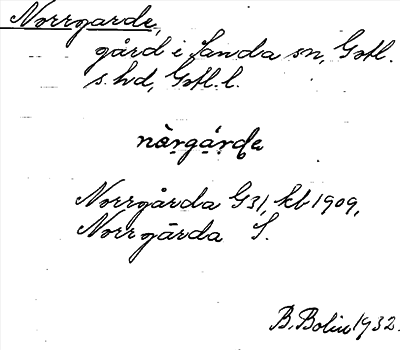 Norrgarde,
gård i Sanda sn, Gotl.
s. hd, Gotl. l.
nò̀rgá̀rde
Norrgårda G31, kb 1909,
Norrgårda S.
B. Bolin 1932.